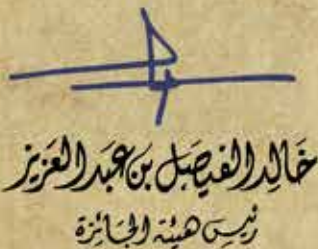 خالد الفيصل بن عبد العزيز
رئيس هيئة الجائزة